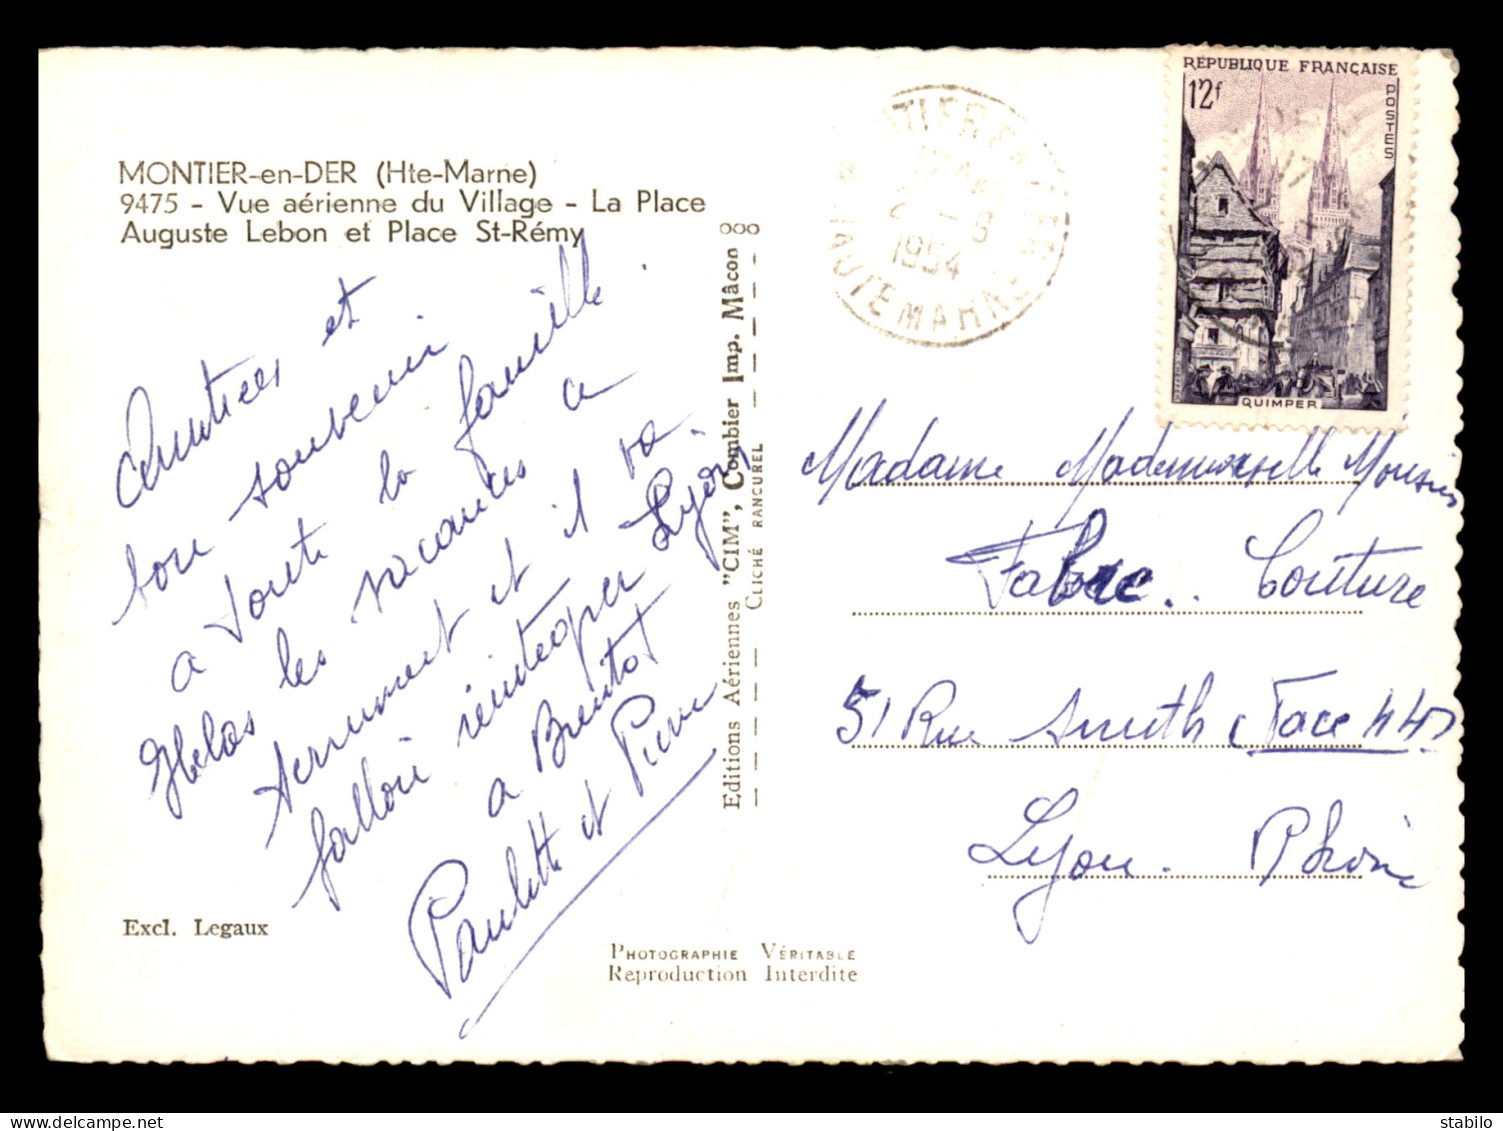 MONTIER-en-DER (Hte-Marne)
9475 - Vue aérienne du Village - La Place
Auguste Lebon et Place St-Rémy
Amitiées et
bon souvenir
a toute la famille.
Helas les vacances ce
terminent et il va
falloir réintégrer Lyon
a Bientot
Paulette et Pierre
Excl. Legaux
Editions Aériennes "CIM", Combier Imp. Mâcon
CLICHÉ RANCUREL
PHOTOGRAPHIE VÉRITABLE
Reproduction Interdite
-9
1954
HAUTE MARNE
RÉPUBLIQUE FRANÇAISE
12f
POSTES
QUIMPER
Madame Mademoiselle Monsieur
Fabre.. Couture
51 Rue Smith (Face 44)
Lyon. Rhône
stabilo